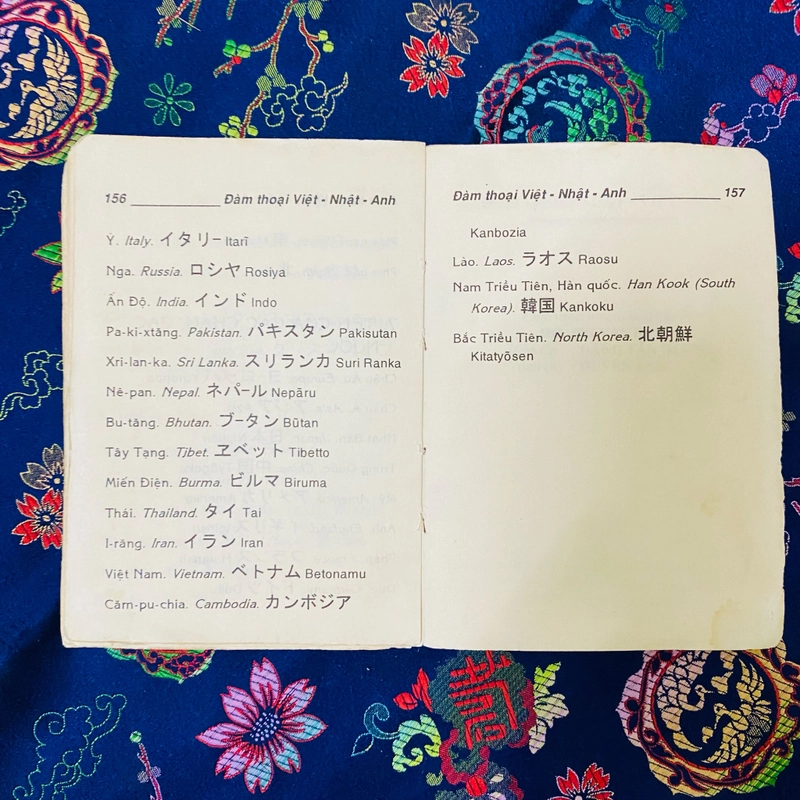 156 ____________ Đàm thoại Việt - Nhật - Anh
Ý. Italy. イタリー Itarī
Nga. Russia. ロシヤ Rosiya
Ấn Độ. India. インド Indo
Pa-ki-xtăng. Pakistan. パキスタン Pakisutan
Xri-lan-ka. Sri Lanka. スリランカ Suri Ranka
Nê-pan. Nepal. ネパール Nepāru
Bu-tăng. Bhutan. ブータン Būtan
Tây Tạng. Tjbet. ヱベット Tibetto
Miến Điện. Burma. ビルマ Biruma
Thái. Thailand. タイ Tai
I-răng. Iran. イラン Iran
Việt Nam. Vietnam. ベトナム Betonamu
Căm-pu-chia. Cambodia. カンボジア
Đàm thoại Việt - Nhật - Anh ____________ 157
Kanbozia
Lào. Laos. ラオス Raosu
Nam Triều Tiên, Hàn quốc. Han Kook (South
Korea). 韓国 Kankoku
Bắc Triều Tiên. North Korea. 北朝鮮
Kitatyōsen